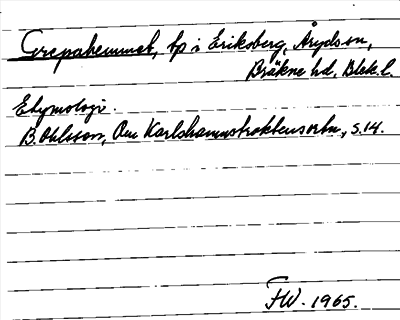 Grepahemmet, tp i Eriksberg, Åryds sn,
Bräkne hd, Blek. l.
Etymologi.
B. Ohlsson, Om Karlshamnstraktens ortn., s. 14.
FW. 1965.